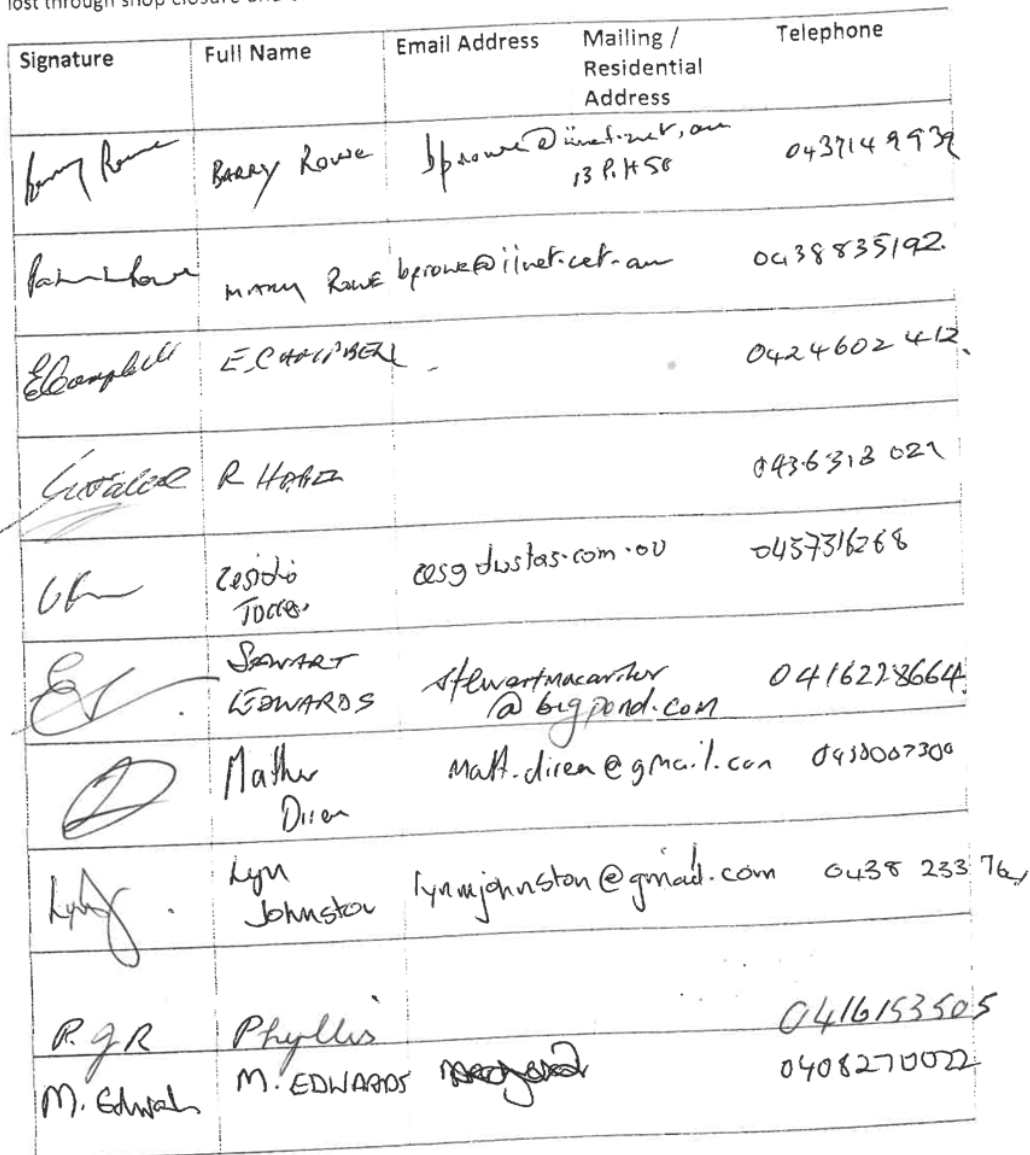 lost through shop closure and
Signature Full Name Email Address Mailing / Residential Address Telephone
Barry Rowe BARRY Rowe bprowe@iinet.net.au 0437149939
13 P. H SG
Rowe MARY ROWE bprowe@iinet.cet.au 0438835192.
ECampbell E. CAMPBELL 0424602412
R 0436313 021
Cesidio 0457316268
STEWART EDWARDS stewartmacarthur@bigpond.com 0416228664
Mathew Diren matt.diren@gmail.com
Lyn Johnston lynmjohnston@gmail.com 0438 233 76
R.G.R Phyllis 0416153505
M. Edwards M. EDWARDS 0408270022